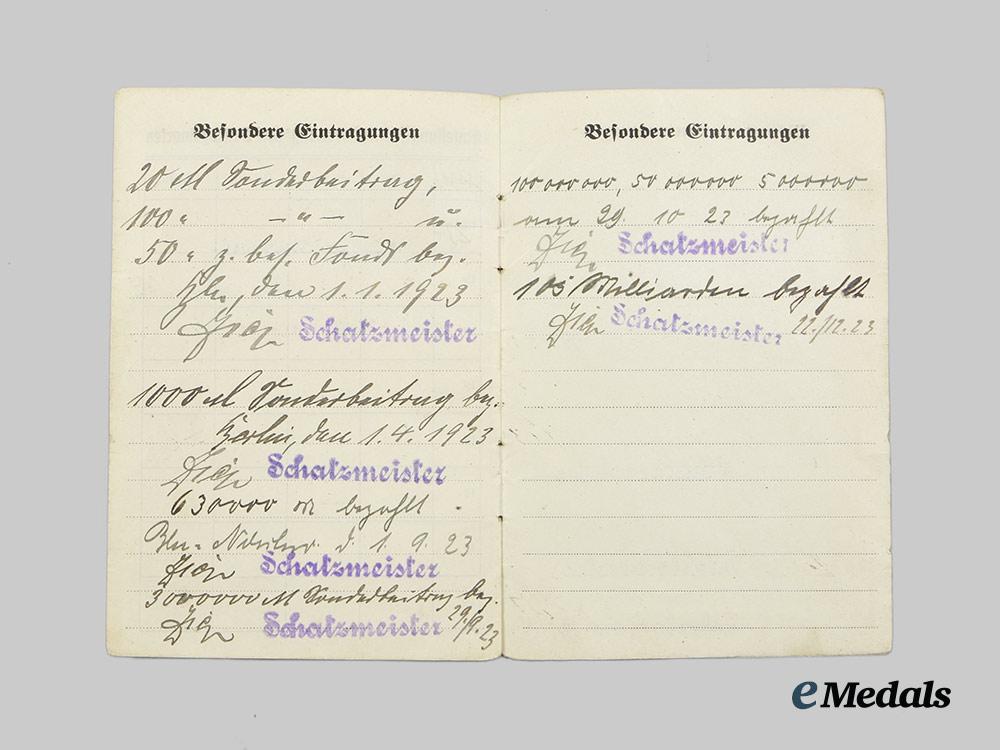 Besondere Eintragungen
20 M Sonderbeitrag,
100 " — " — u.
50 " z. bes. Fonds bez.
Bln., den 1.1.1923
Schatzmeister
1000 M Sonderbeitrag bez.
Berlin, den 1.4.1923
Schatzmeister
630000 M bezahlt.
Bln.- d. 1. 9. 23
Schatzmeister
3000000 M Sonderbeitrag bez.
Schatzmeister 29/9.23
Besondere Eintragungen
100 000 000, 50 000000 5 000000
am 29. 10 23 bezahlt
Schatzmeister
105 Milliarden bezahlt
Schatzmeister 22./12.23
eMedals